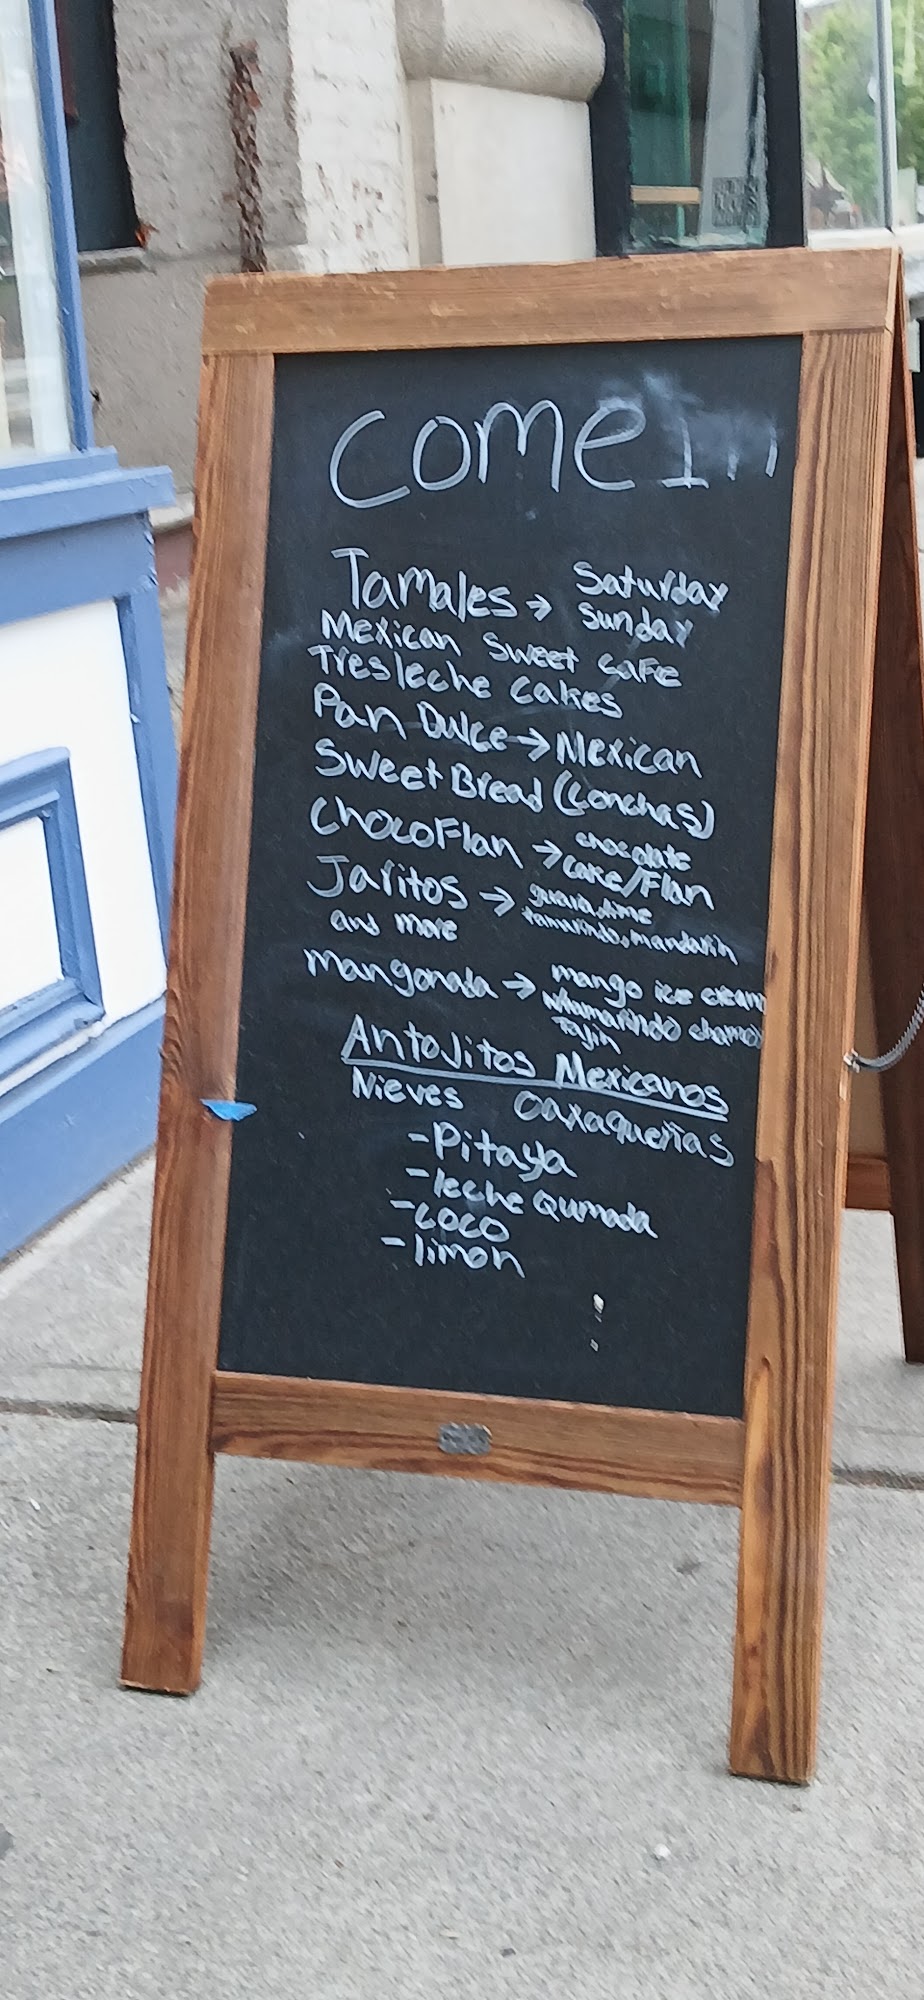 Come In
Tamales → Saturday
Sunday
Mexican Sweet Cafe
Tresleche Cakes
Pan Dulce → Mexican
Sweet Bread (Conchas)
ChocoFlan → chocolate
cake/Flan
Jaritos → guava, lime
and more tamarindo, mandarin
mangonada → mango ice cream
w/tamarindo chamoy
Tajin
Antojitos Mexicanos
Nieves Oaxaqueñas
- Pitaya
- leche Qumada
- coco
- limon